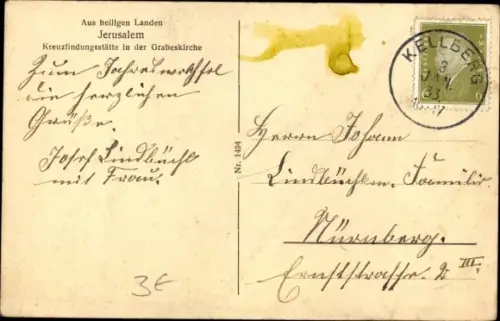 Aus heiligen Landen
Jerusalem
Kreuzfindungsstätte in der Grabeskirche
Zum Jahreswechsel
die herzlichen
Grüße.
Josef Lindbüchl
mit Frau.
3€
Nr. 1494
KELLBERG
3
JAN.
33
Herrn Johann
Lindbüchl u. Familie
Nürnberg.
Ernststrasse 2 III.